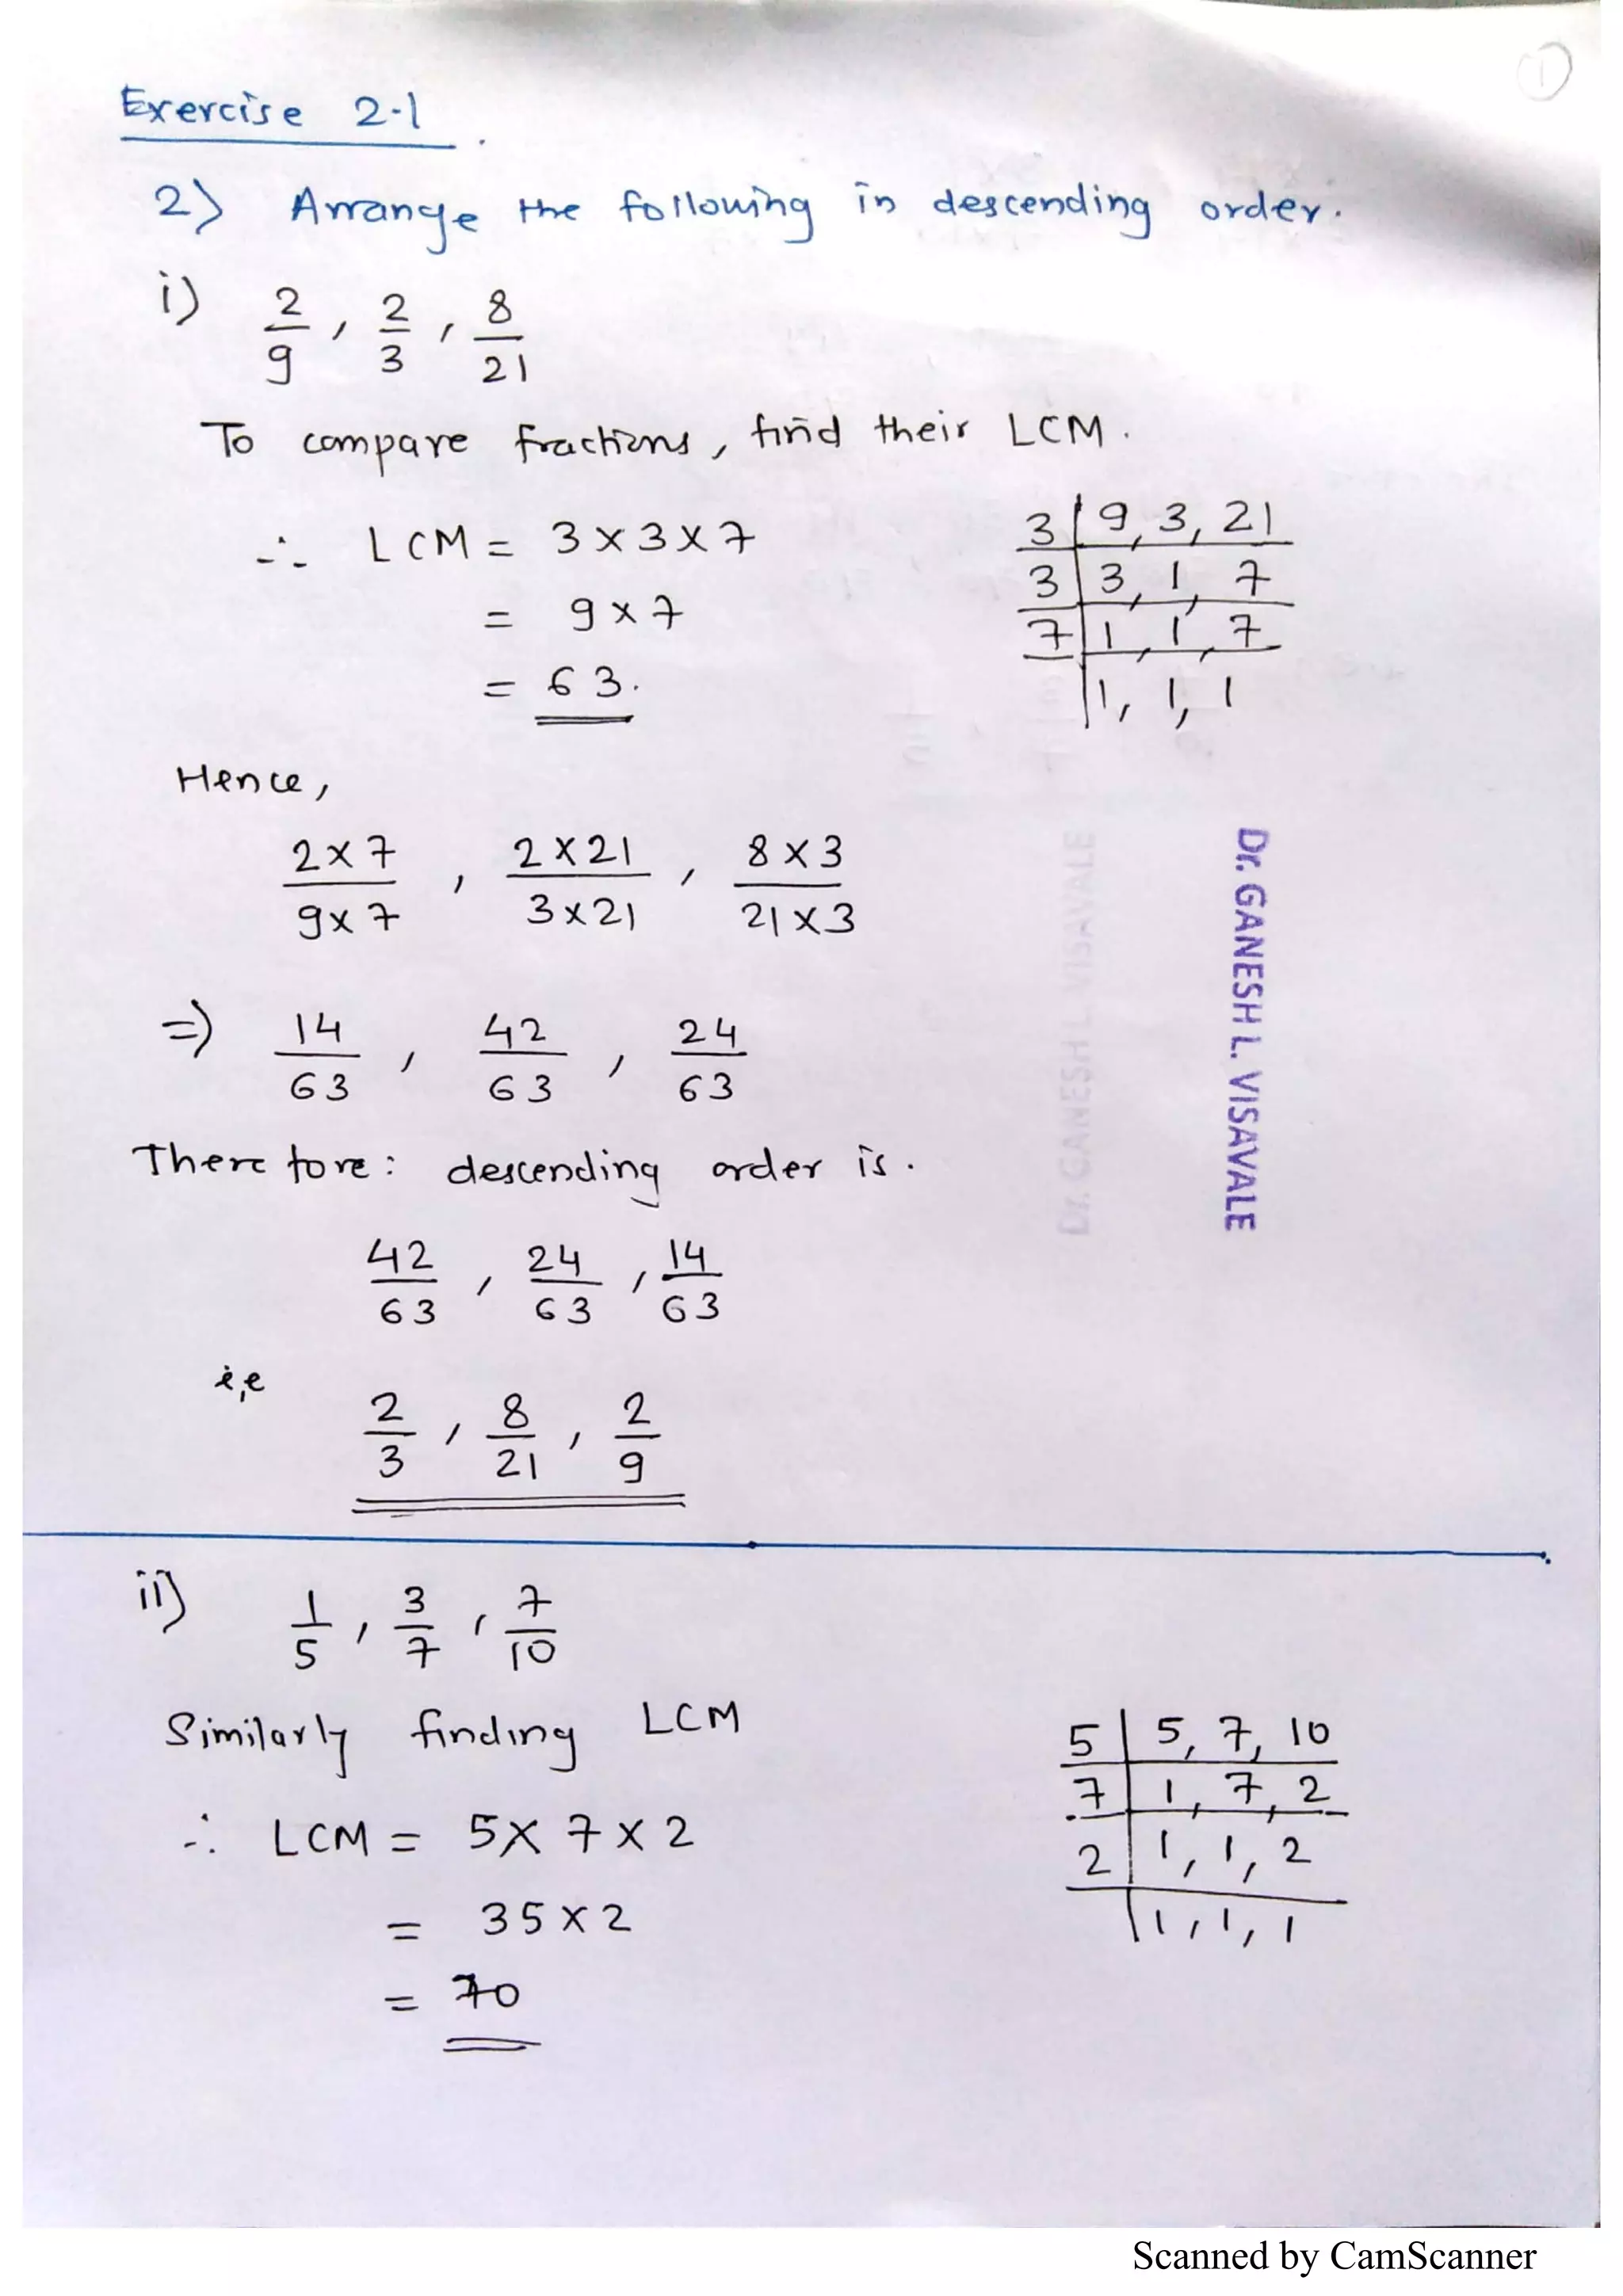 1
Exercise 2.1
2) Arrange the following in descending order.
i) 2/9 , 2/3 , 8/21
To compare fractions, find their LCM.
∴ LCM = 3 × 3 × 7
= 9 × 7
= 63.
3 | 9, 3, 21
3 | 3, 1, 7
7 | 1, 1, 7
| 1, 1, 1
Hence,
2×7/9×7 , 2×21/3×21 , 8×3/21×3
⇒ 14/63 , 42/63 , 24/63
Therefore: descending order is.
42/63 , 24/63 , 14/63
i.e
2/3 , 8/21 , 2/9
Dr. GANESH L. VISAVALE
ii) 1/5 , 3/7 , 7/10
Similarly finding LCM
∴ LCM = 5 × 7 × 2
= 35 × 2
= 70
5 | 5, 7, 10
7 | 1, 7, 2
2 | 1, 1, 2
| 1, 1, 1
Scanned by CamScanner